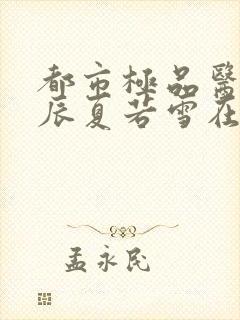 都市極品醫
辰夏若雪在
孟永民